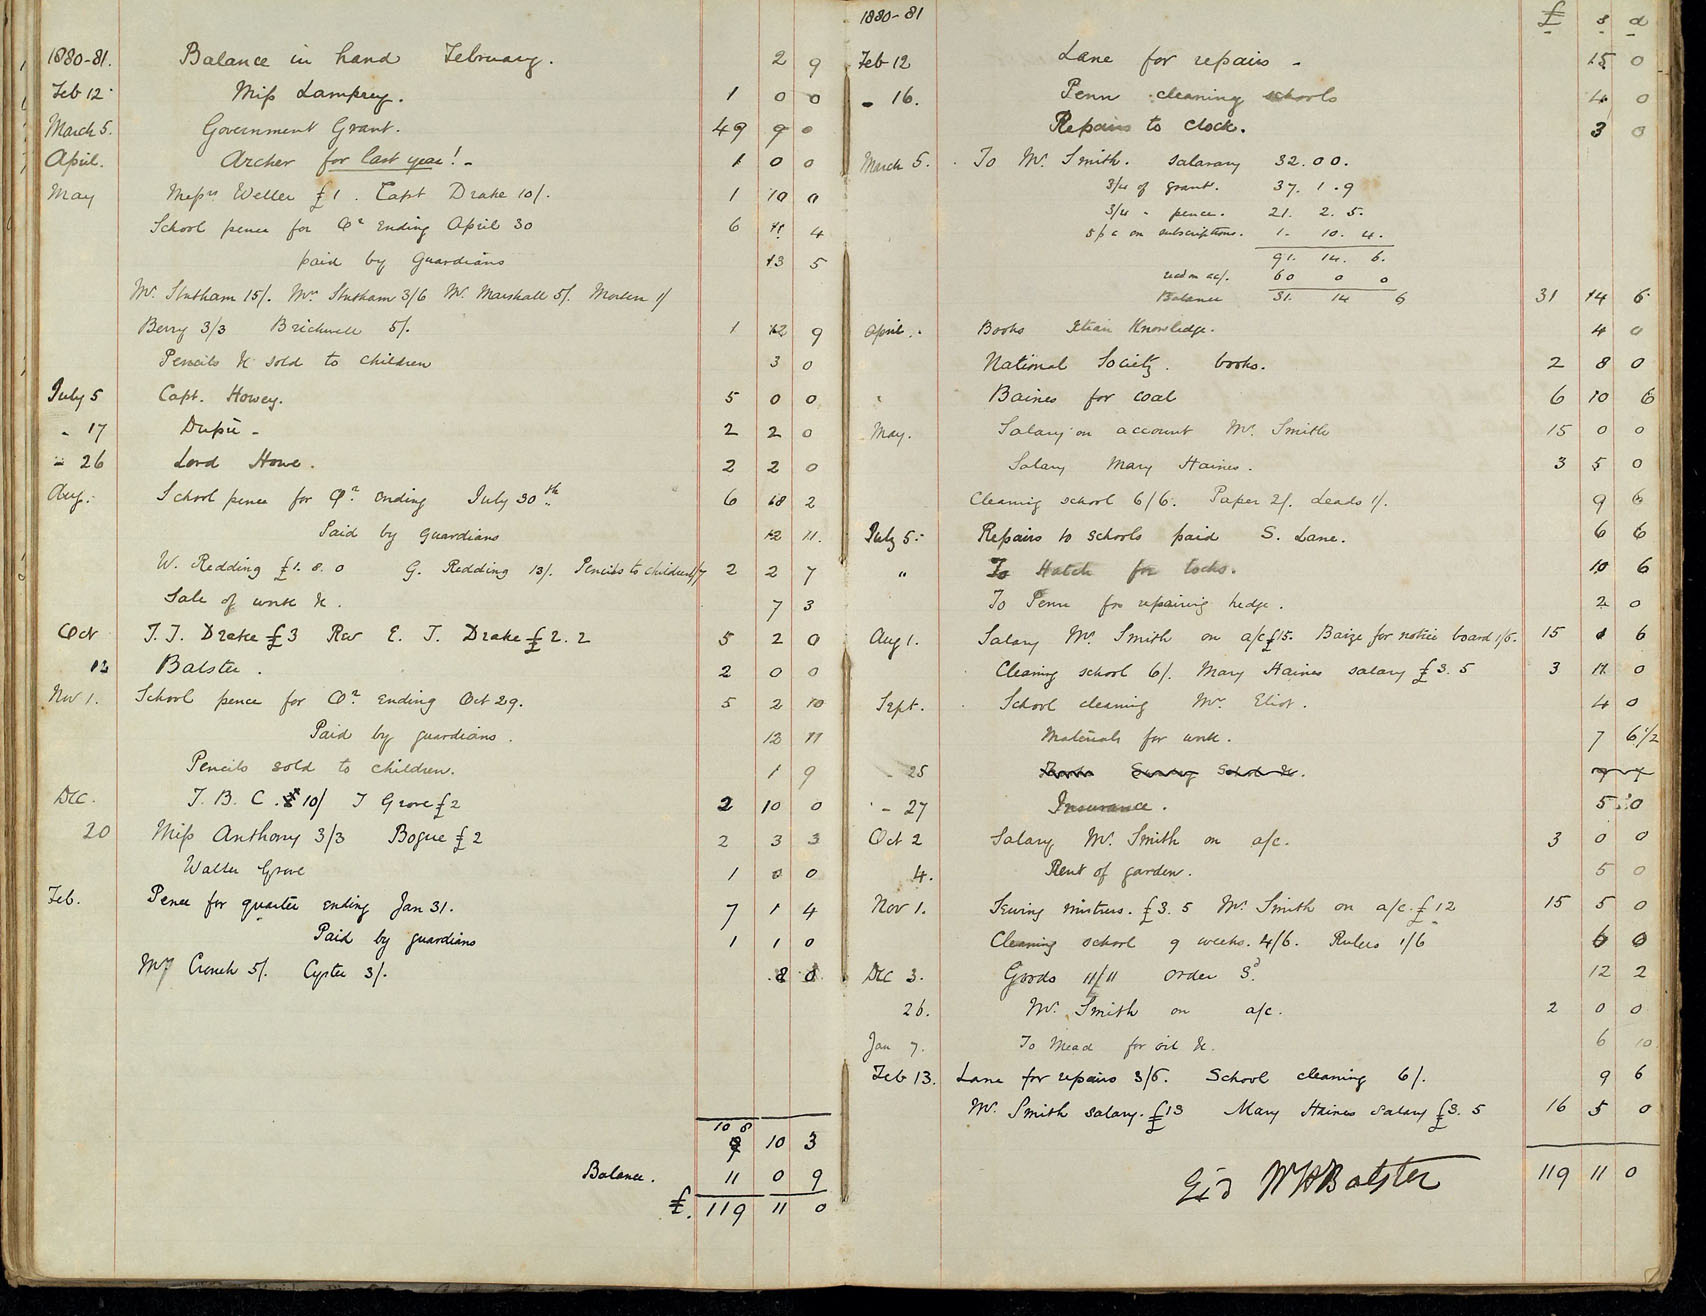 1880-81. Balance in hand February. 2 9
Feb 12 Miss Lamprey. 1 0 0
March 5. Government Grant. 49 9 0
April. Archer for last year! - 1 0 0
May Messrs Weller £1. Capt Drake 10/. 1 10 0
School pence for Qr ending April 30 6 11 4
paid by guardians 13 5
Mr. Statham 15/. Mrs Statham 3/6 Mr. Marshall 5/. Morten 1/
Berry 3/3 Brickwell 5/. 1 12 9
Pencils &c sold to children 3 0
July 5 Capt. Howey. 5 0 0
- 17 Dupré - 2 2 0
- 26 Lord Howe. 2 2 0
Aug. School pence for Qr. ending July 30th 6 18 2
Paid by guardians 12 11.
W. Redding £1. 8. 0 G. Redding 13/. Pencils to children 1/7 2 2 7
Sale of work &c. 7 3
Oct T. T. Drake £3 Rev E. T. Drake £2. 2 5 2 0
12 Balster. 2 0 0
Nov 1. School pence for Qr. ending Oct 29. 5 2 10
Paid by guardians. 12 11
Pencils sold to children. 1 9
Dec. T. B. C. 10/ T Grove £2 2 10 0
20 Miss Anthony 3/3 Bogue £2 2 3 3
Walter Grove 1 0 0
Feb. Pence for quarter ending Jan 31. 7 1 4
Paid by guardians 1 1 0
Mrs Crouch 5/. Cyster 3/. 8 0
108
9 10 3
Balance. 11 0 9
£. 119 11 0
1880-81 £ s d
Feb 12 Lane for repairs - 15 0
- 16. Penn cleaning schools 4 0
Repairs to clock. 3 0
March 5. To Mr. Smith. salarary 32. 0 0.
3/4 of grant. 37. 1. 9
3/4 - pence. 21. 2. 5.
5 p c on subscriptions. 1. 10. 4.
91. 14. 6.
recd on ac/. 60 0 0
Balance 31. 14 6 31 14 6
April. Books Xtian Knowledge. 4 0
National Society. books. 2 8 0
Baines for coal 6 10 6
May. Salary on account Mr. Smith 15 0 0
Salary Mary Haines. 3 5 0
Cleaning school 6/6. Paper 2/. Leads 1/. 9 6
July 5. Repairs to schools paid S. Lane. 6 6
" To Hatch for locks. 10 6
To Penn for repairing hedge. 2 0
Aug 1. Salary Mr. Smith on a/c £15. Baize for notice board 1/6. 15 1 6
Cleaning school 6/. Mary Haines salary £3. 5 3 11 0
Sept. School cleaning Mrs. Eliot. 4 0
Materials for work. 7 6 1/2
- 25
- 27 Insurance. 5 0
Oct 2 Salary Mr. Smith on a/c. 3 0 0
4. Rent of garden. 5 0
Nov 1. Sewing mistress. £3. 5 Mr Smith on a/c. £12 15 5 0
Cleaning school 9 weeks. 4/6. Rulers 1/6 6 0
Dec 3. Goods 11/11 order 3d. 12 2
26. Mr. Smith on a/c. 2 0 0
Jan 7. To Mead for oil &c. 6 10
Feb 13. Lane for repairs 3/6. School cleaning 6/. 9 6
Mr. Smith salary. £13 Mary Haines salary £3. 5 16 5 0
W H Balster 119 11 0